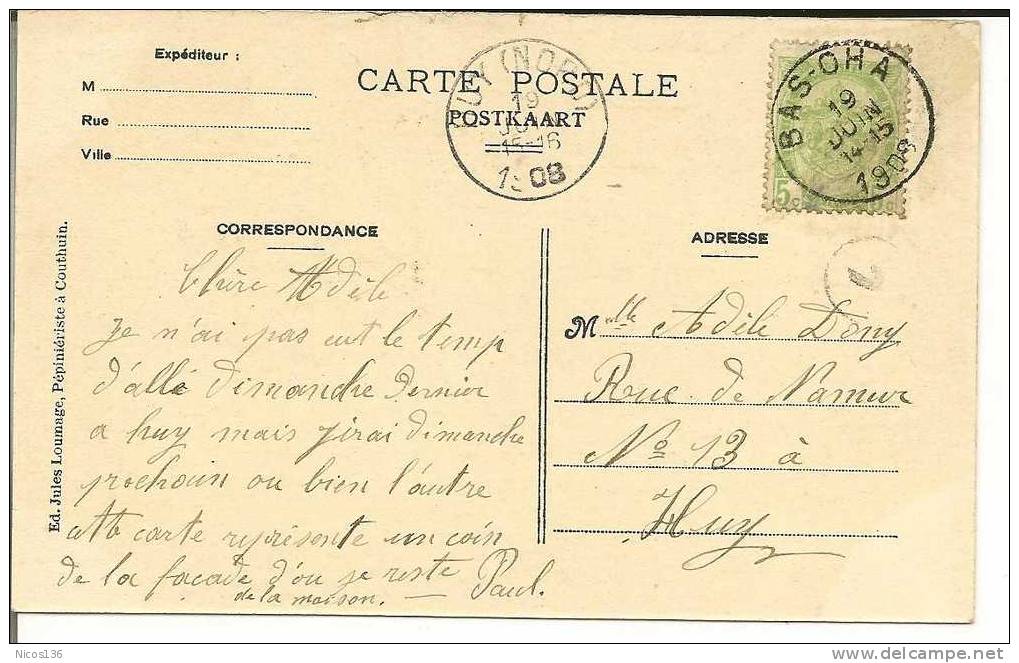 Expéditeur :
M
Rue
Ville
CARTE POSTALE
POSTKAART
HUY (NORD)
19
JUIN
15-16
1908
BAS-OHA
19
JUIN
14-15
1908
5c 5c
CORRESPONDANCE
ADRESSE
Chère Adèle
Je n'ai pas eut le temp
d'allé dimanche dernier
a huy mais j'irai dimanche
prochain ou bien l'autre
cette carte représente un coin
de la façade d'ou je reste Paul.
de la maison.
Mlle Adèle Dony
Rue de Namur
No 13 à
Huy
Ed. Jules Loumage, Pépiniériste à Couthuin.
Nicos136
delcampe.net